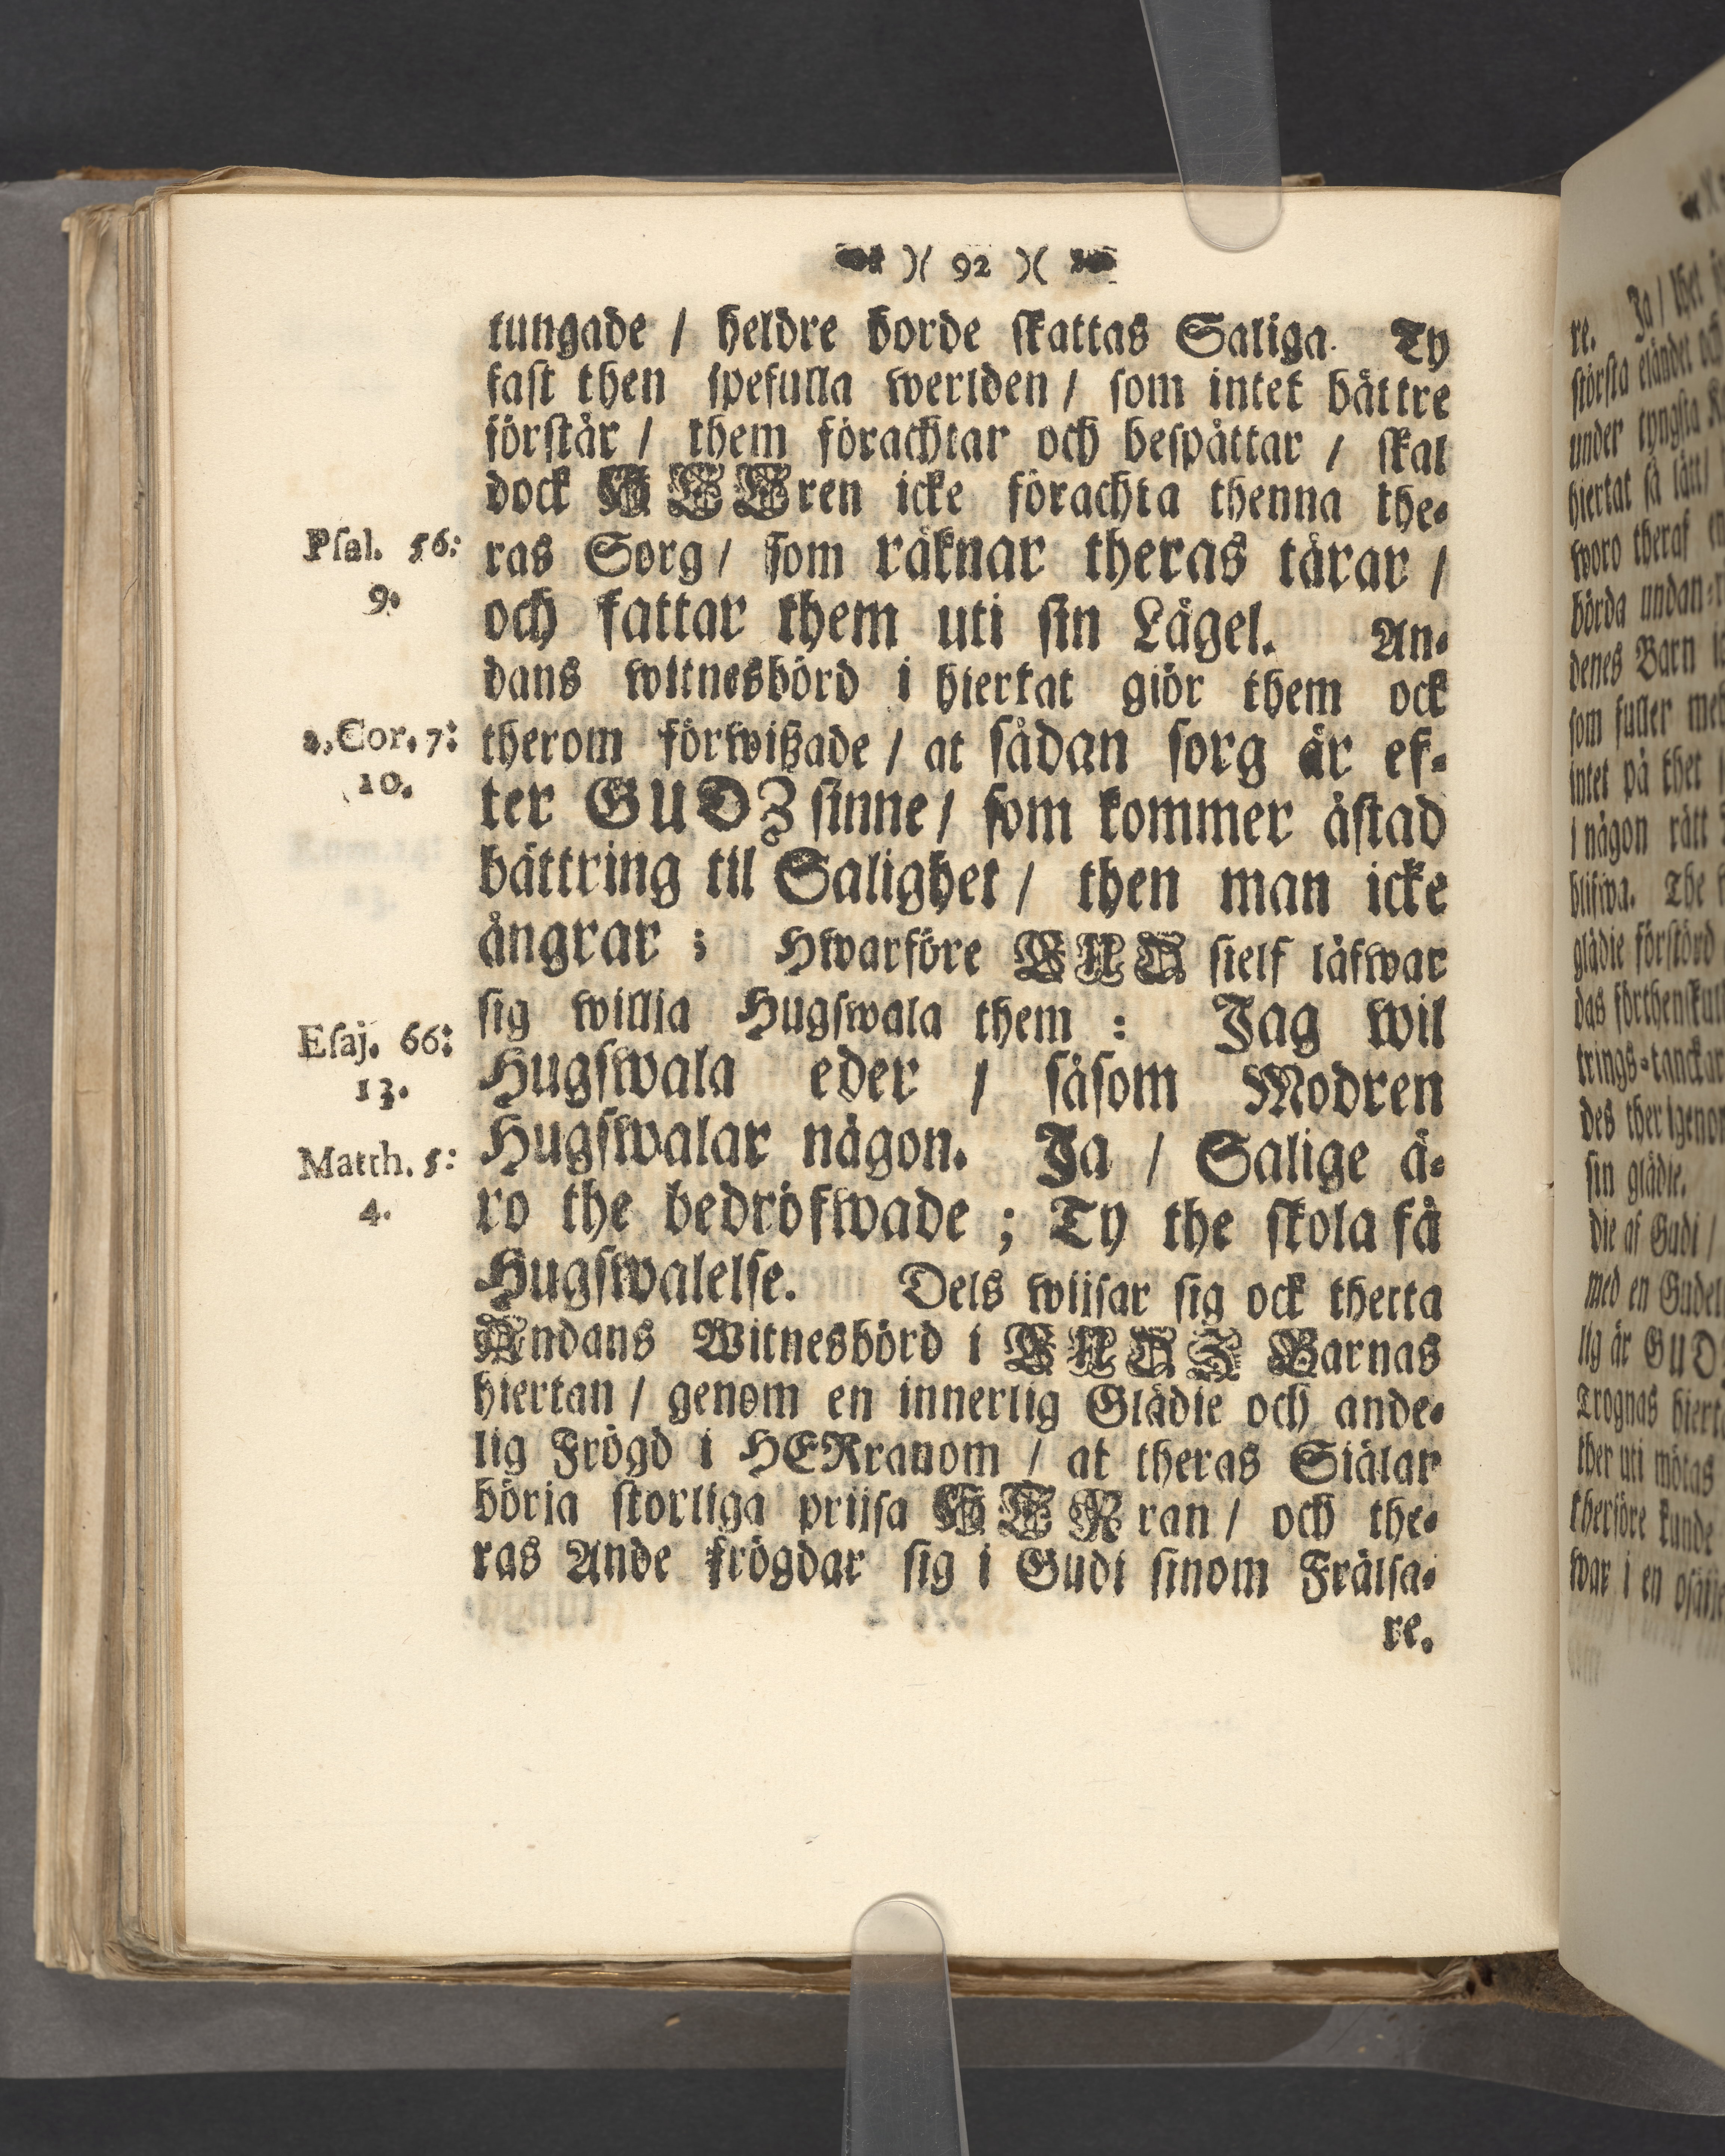 )( 92 )(
tungade / heldre borde skattas Saliga. Ty
fast then spefulla werlden / som intet bättre
förstår / them förachtar och bespåttar / skal
dock HERren icke förachta thenna the-
Psal. 56: ras Sorg / som räknar theras tårar /
9. och fattar them uti sin Lägel. An-
dans witnesbörd i hiertat giör them ock
2. Cor. 7: therom förwißade / at sådan sorg är ef-
10. ter GUDZ sinne / som kommer åstad
bättring til Salighet / then man icke
ångrar ; Hwarföre GUD sielf läfwar
sig willia Hugswala them : Jag wil
Esaj. 66: Hugswala eder / såsom Modren
13. Hugswalar någon. Ja / Salige ä-
Matth. 5: ro the bedröfwade ; Ty the skola få
4. Hugswalelse. Dels wiisar sig ock thetta
Andans Witnesbörd i GUDZ Barnas
hiertan / genom en innerlig Glädie och ande-
lig Frögd i HERranom / at theras Siälar
börja storliga priisa HERran / och the-
ras Ande frögdar sig i Gudi sinom Frälsa-
re.
re. Ja / thet
största eländet och
under tyngsta
hiertat så lätt /
woro theraf
börda undan-
denes Barn
som fuller med
intet på thet
i någon rätt
blifwa. The
glädie förstörd
das förthenskul
trings-tanckar
des ther igenom
sin glädie.
die af Gudi /
med en Gudel
lig är GUD
Trognas hiert
ther uti mötas
therföre kunde
war i en